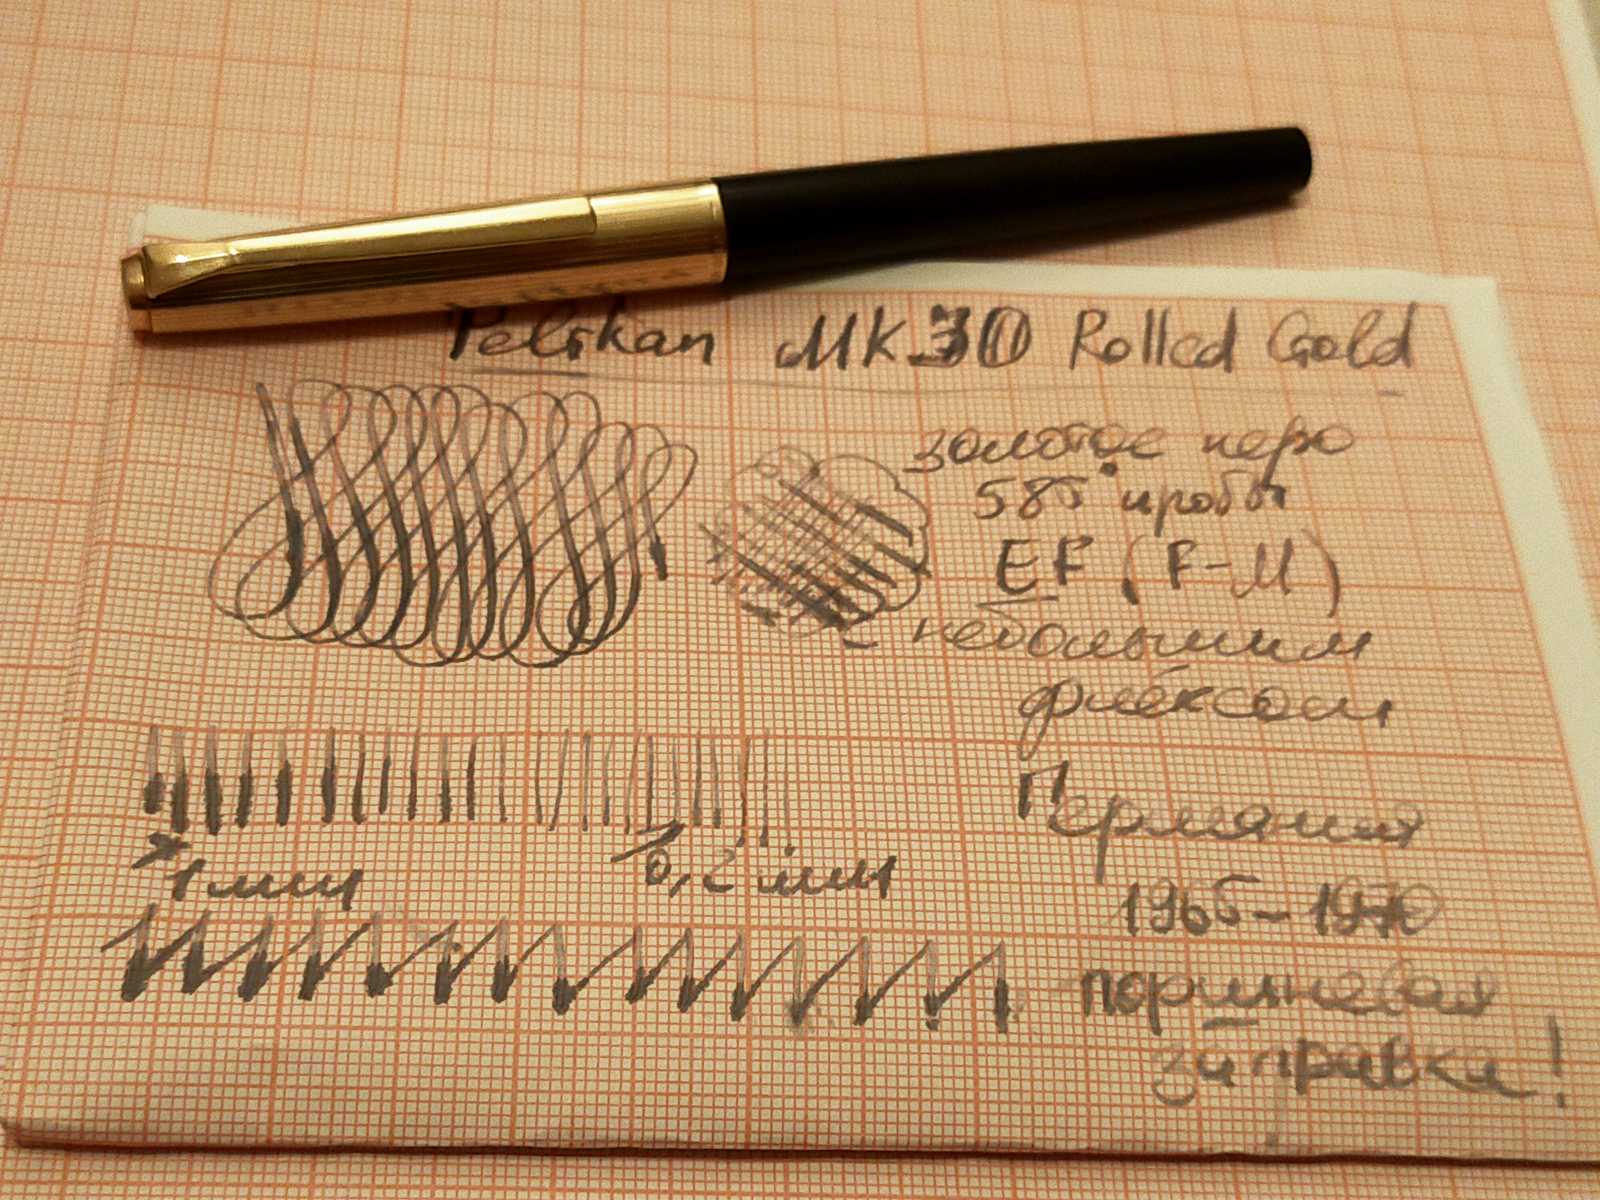 Pelikan MK30 Rolled Gold
золотое перо
585° пробы
EF (F-M)
с небольшим
флексом
Германия
1965-1970
поршневая
заправка!
1 мм
0,2 мм